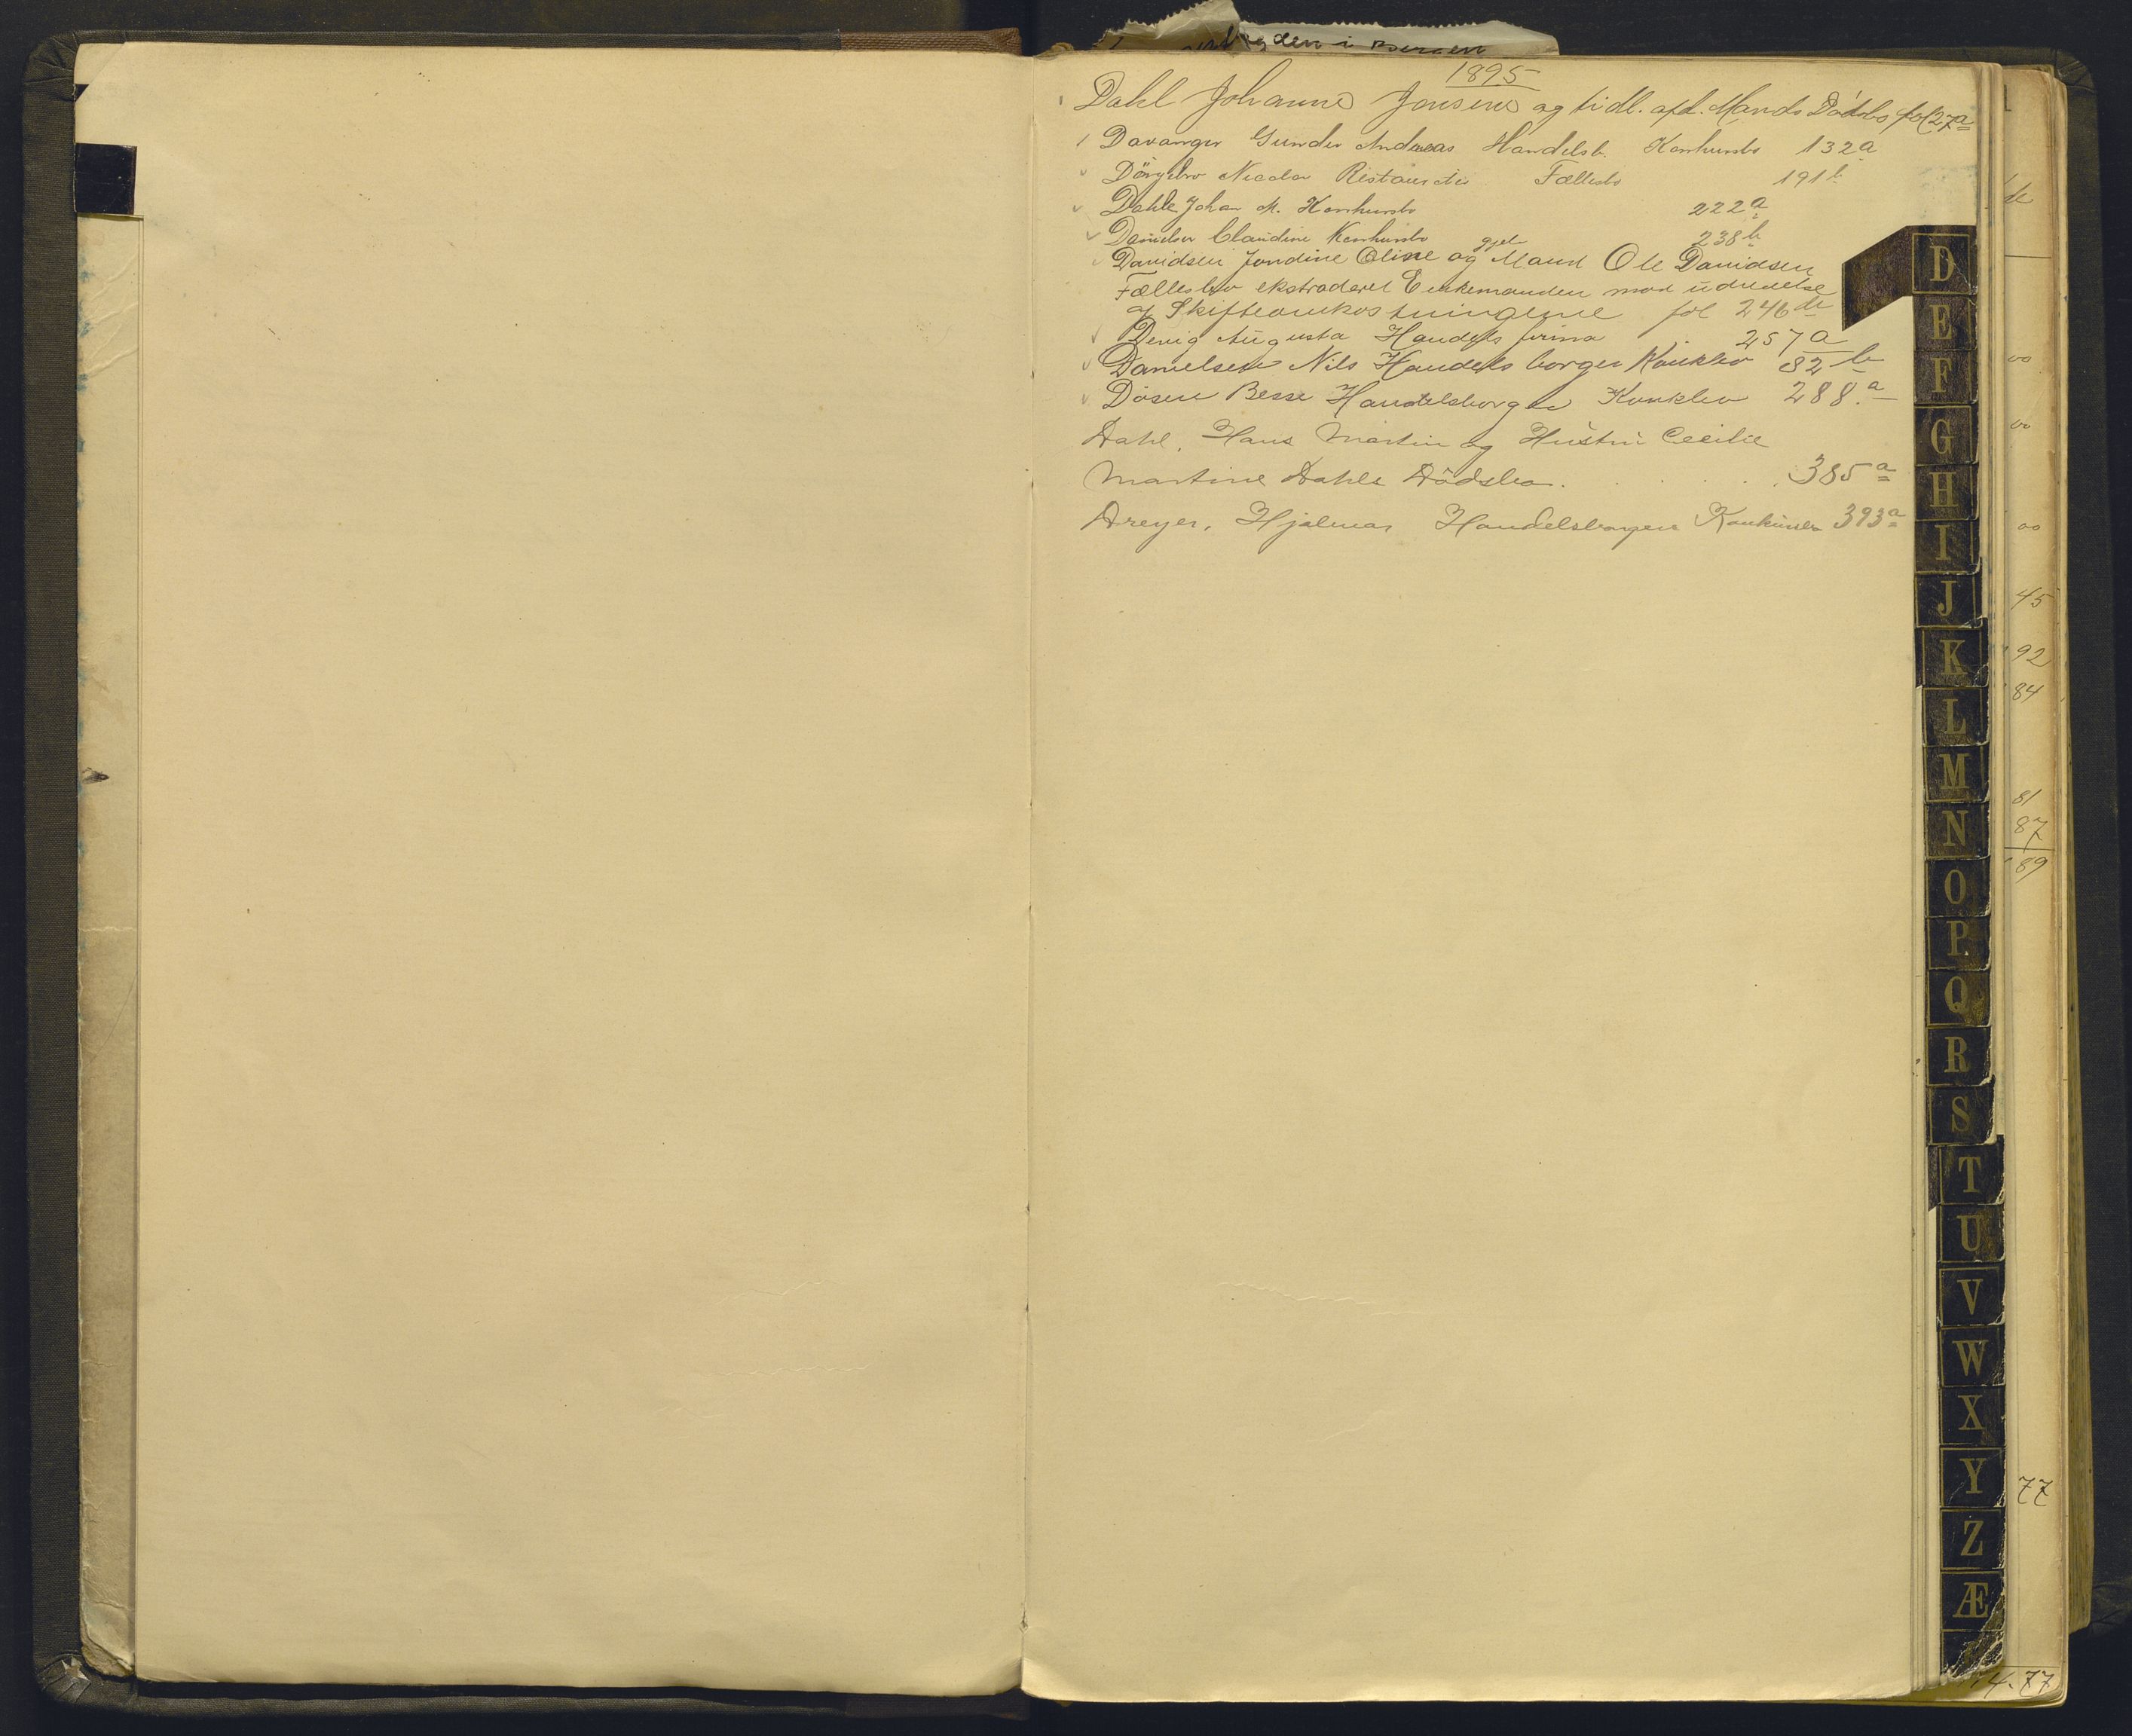 den i Bergen
1895
Dahl Johanne Jensine og tidl. afd. Mands Dødsbo fol 27a
Davanger Gunder Andreas Handelsb. Konkursbo 132a
Nicolai Fællesbo 191b
Dahle Johan M. Konkursbo 222a
Danielsen Claudine Konkursbo 238b
Davidsen Jondine Oline og gjel. Mand Ole Davidsen
Fællesbo ekstraderet Enkemanden mod udredelse
af Skifteomkostningerne fol 246b
Augusta Handels firma 257a
Danielsen Nils Handelsborger Konkbo 82b
Døsen Besse Handelsborger Konkbo 288a
Dahl, Hans Martin og Hustru Cecilie
Martine Dahls Dödsbo. 385a
Dreyer, Hjalmar Handelsborger Konkursbo 393a
D
E
F
G
H
I
J
K
L
M
N
O
P
Q
R
S
T
U
V
W
X
Y
Z
Æ
00
00
00
45
92
84
81
87
89
77
14.77